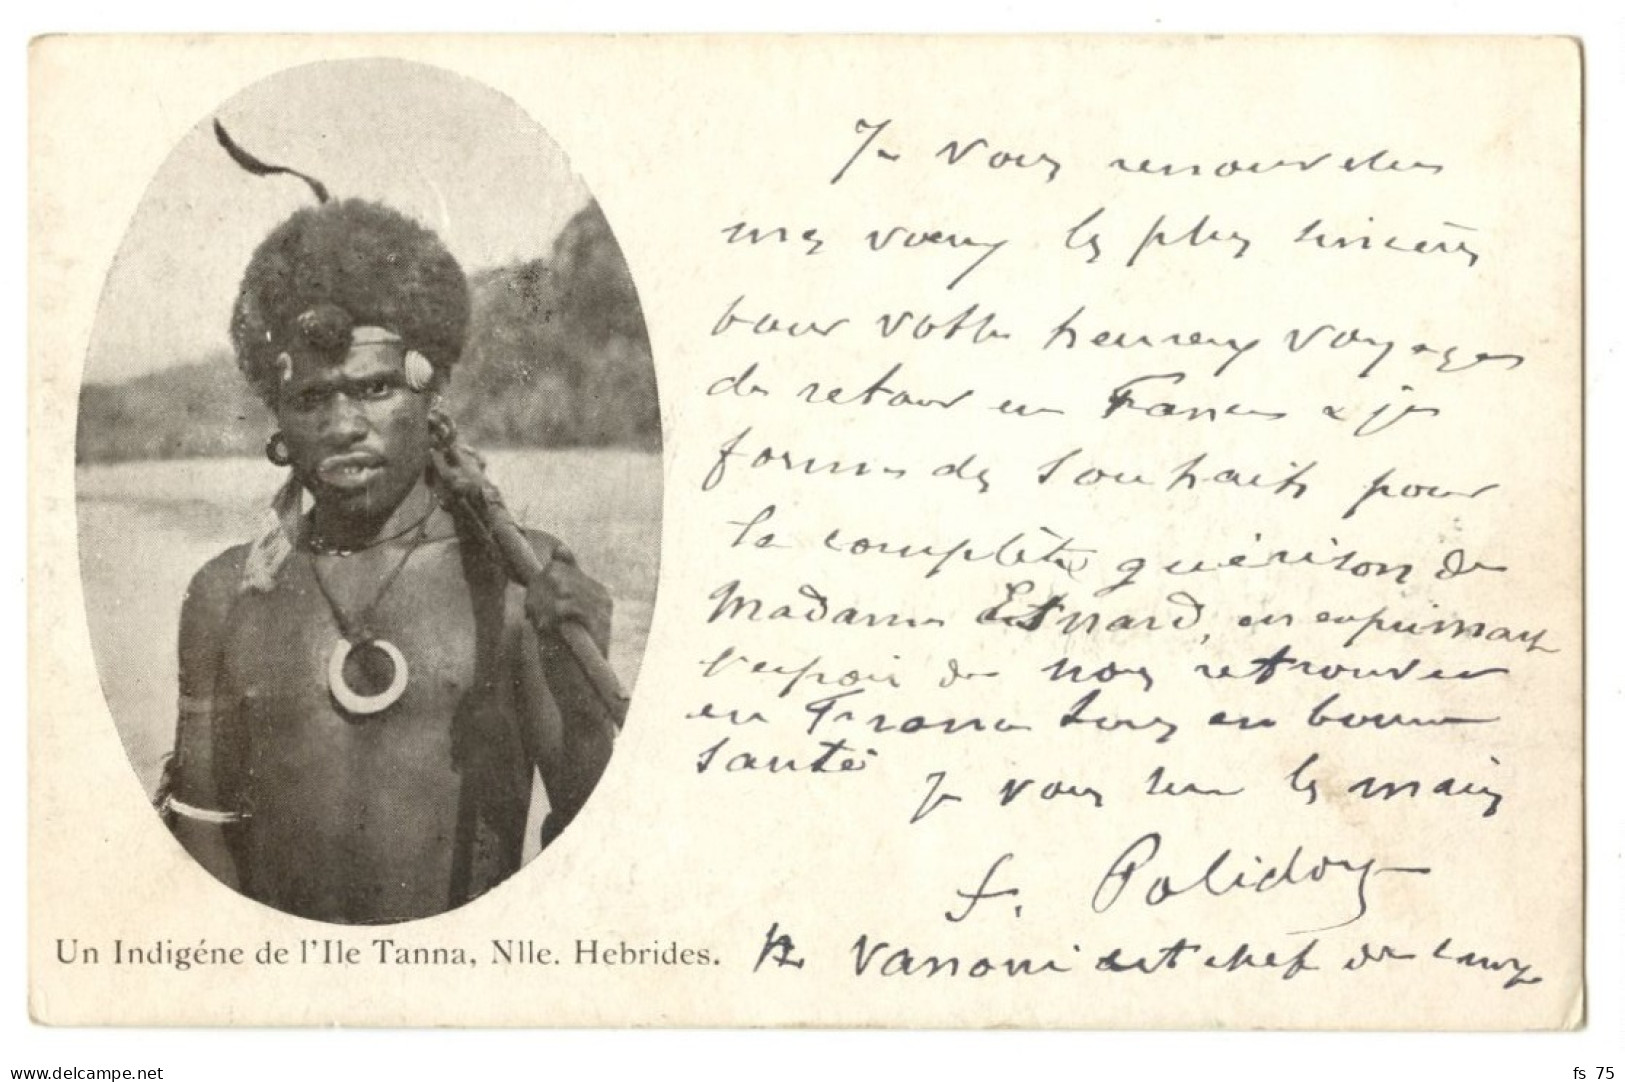 Je vous renouvelle
mes vœux les plus sincères
pour votre heureux voyage
de retour en France & je
forme des souhaits pour
la complète guérison de
Madame Esnard, en exprimant
l'espoir de nous retrouver
en France tous en bonne
santé
Je vous serre les mains
F. Polidory
Vanoni est chef de
Un Indigéne de l'Ile Tanna, Nlle. Hebrides.
www.delcampe.net
fs 75